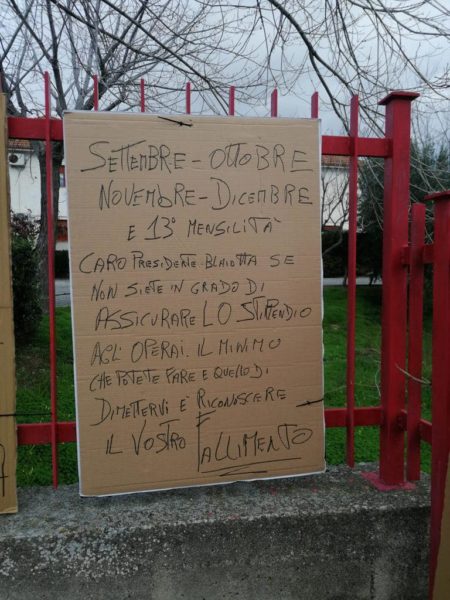 SETTEMBRE - OTTOBRE
NOVEMBRE - DICEMBRE
E 13° MENSILITÀ
CARO PRESIDENTE BLAIOTTA SE
NON SIETE IN GRADO DI
ASSICURARE LO STIPENDIO
AGLI OPERAI. IL MINIMO
CHE POTETE FARE E QUELLO DI
DIMETTERVI E RICONOSCERE
IL VOSTRO FALLIMENTO